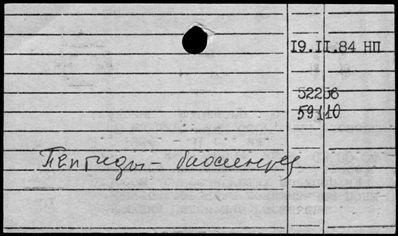 19.II.84 НП
52256
59110
Пептиды – биосинтез